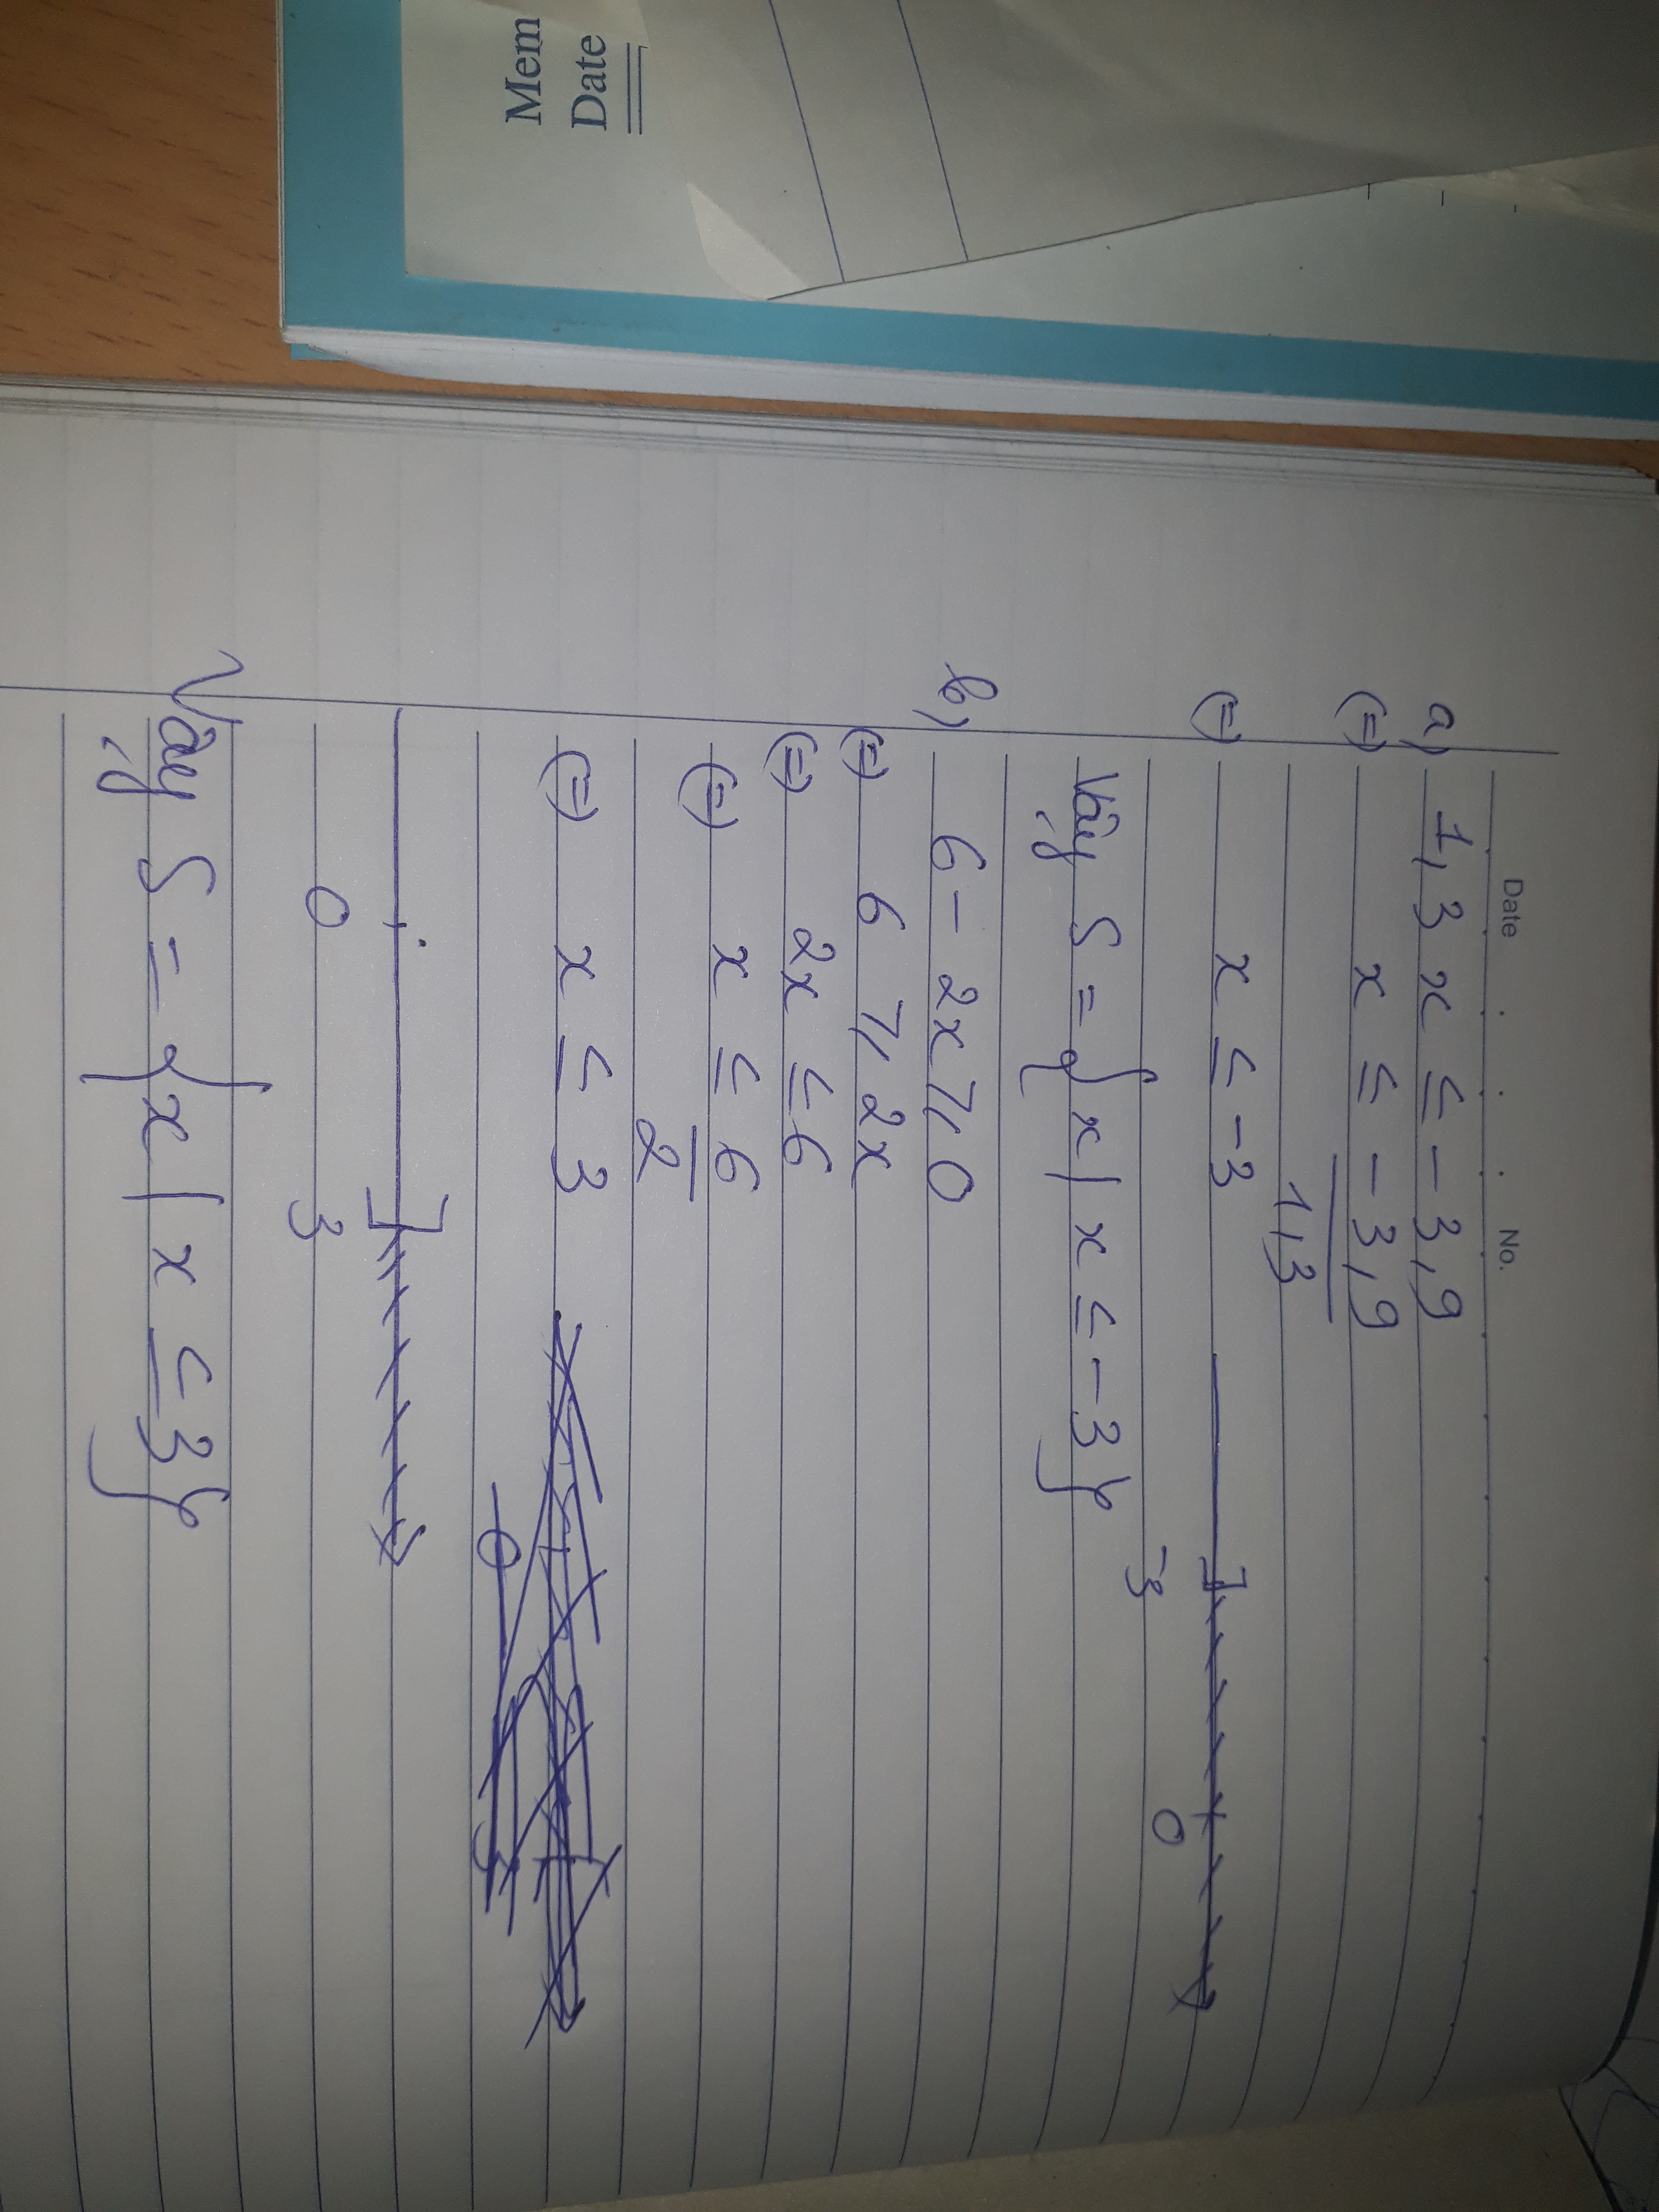 Mem
Date
Date No.
a) 1,3 x ≤ -3,9
(=) x ≤ -3,9
1,3
(=) x ≤ -3
-3 0
Vậy S = {x | x ≤ -3}
b) 6 - 2x ⩾ 0
(=) 6 ⩾ 2x
(=) 2x ≤ 6
(=) x ≤ 6
2
(=) x ≤ 3
0 3
Vậy S = {x | x ≤ 3}